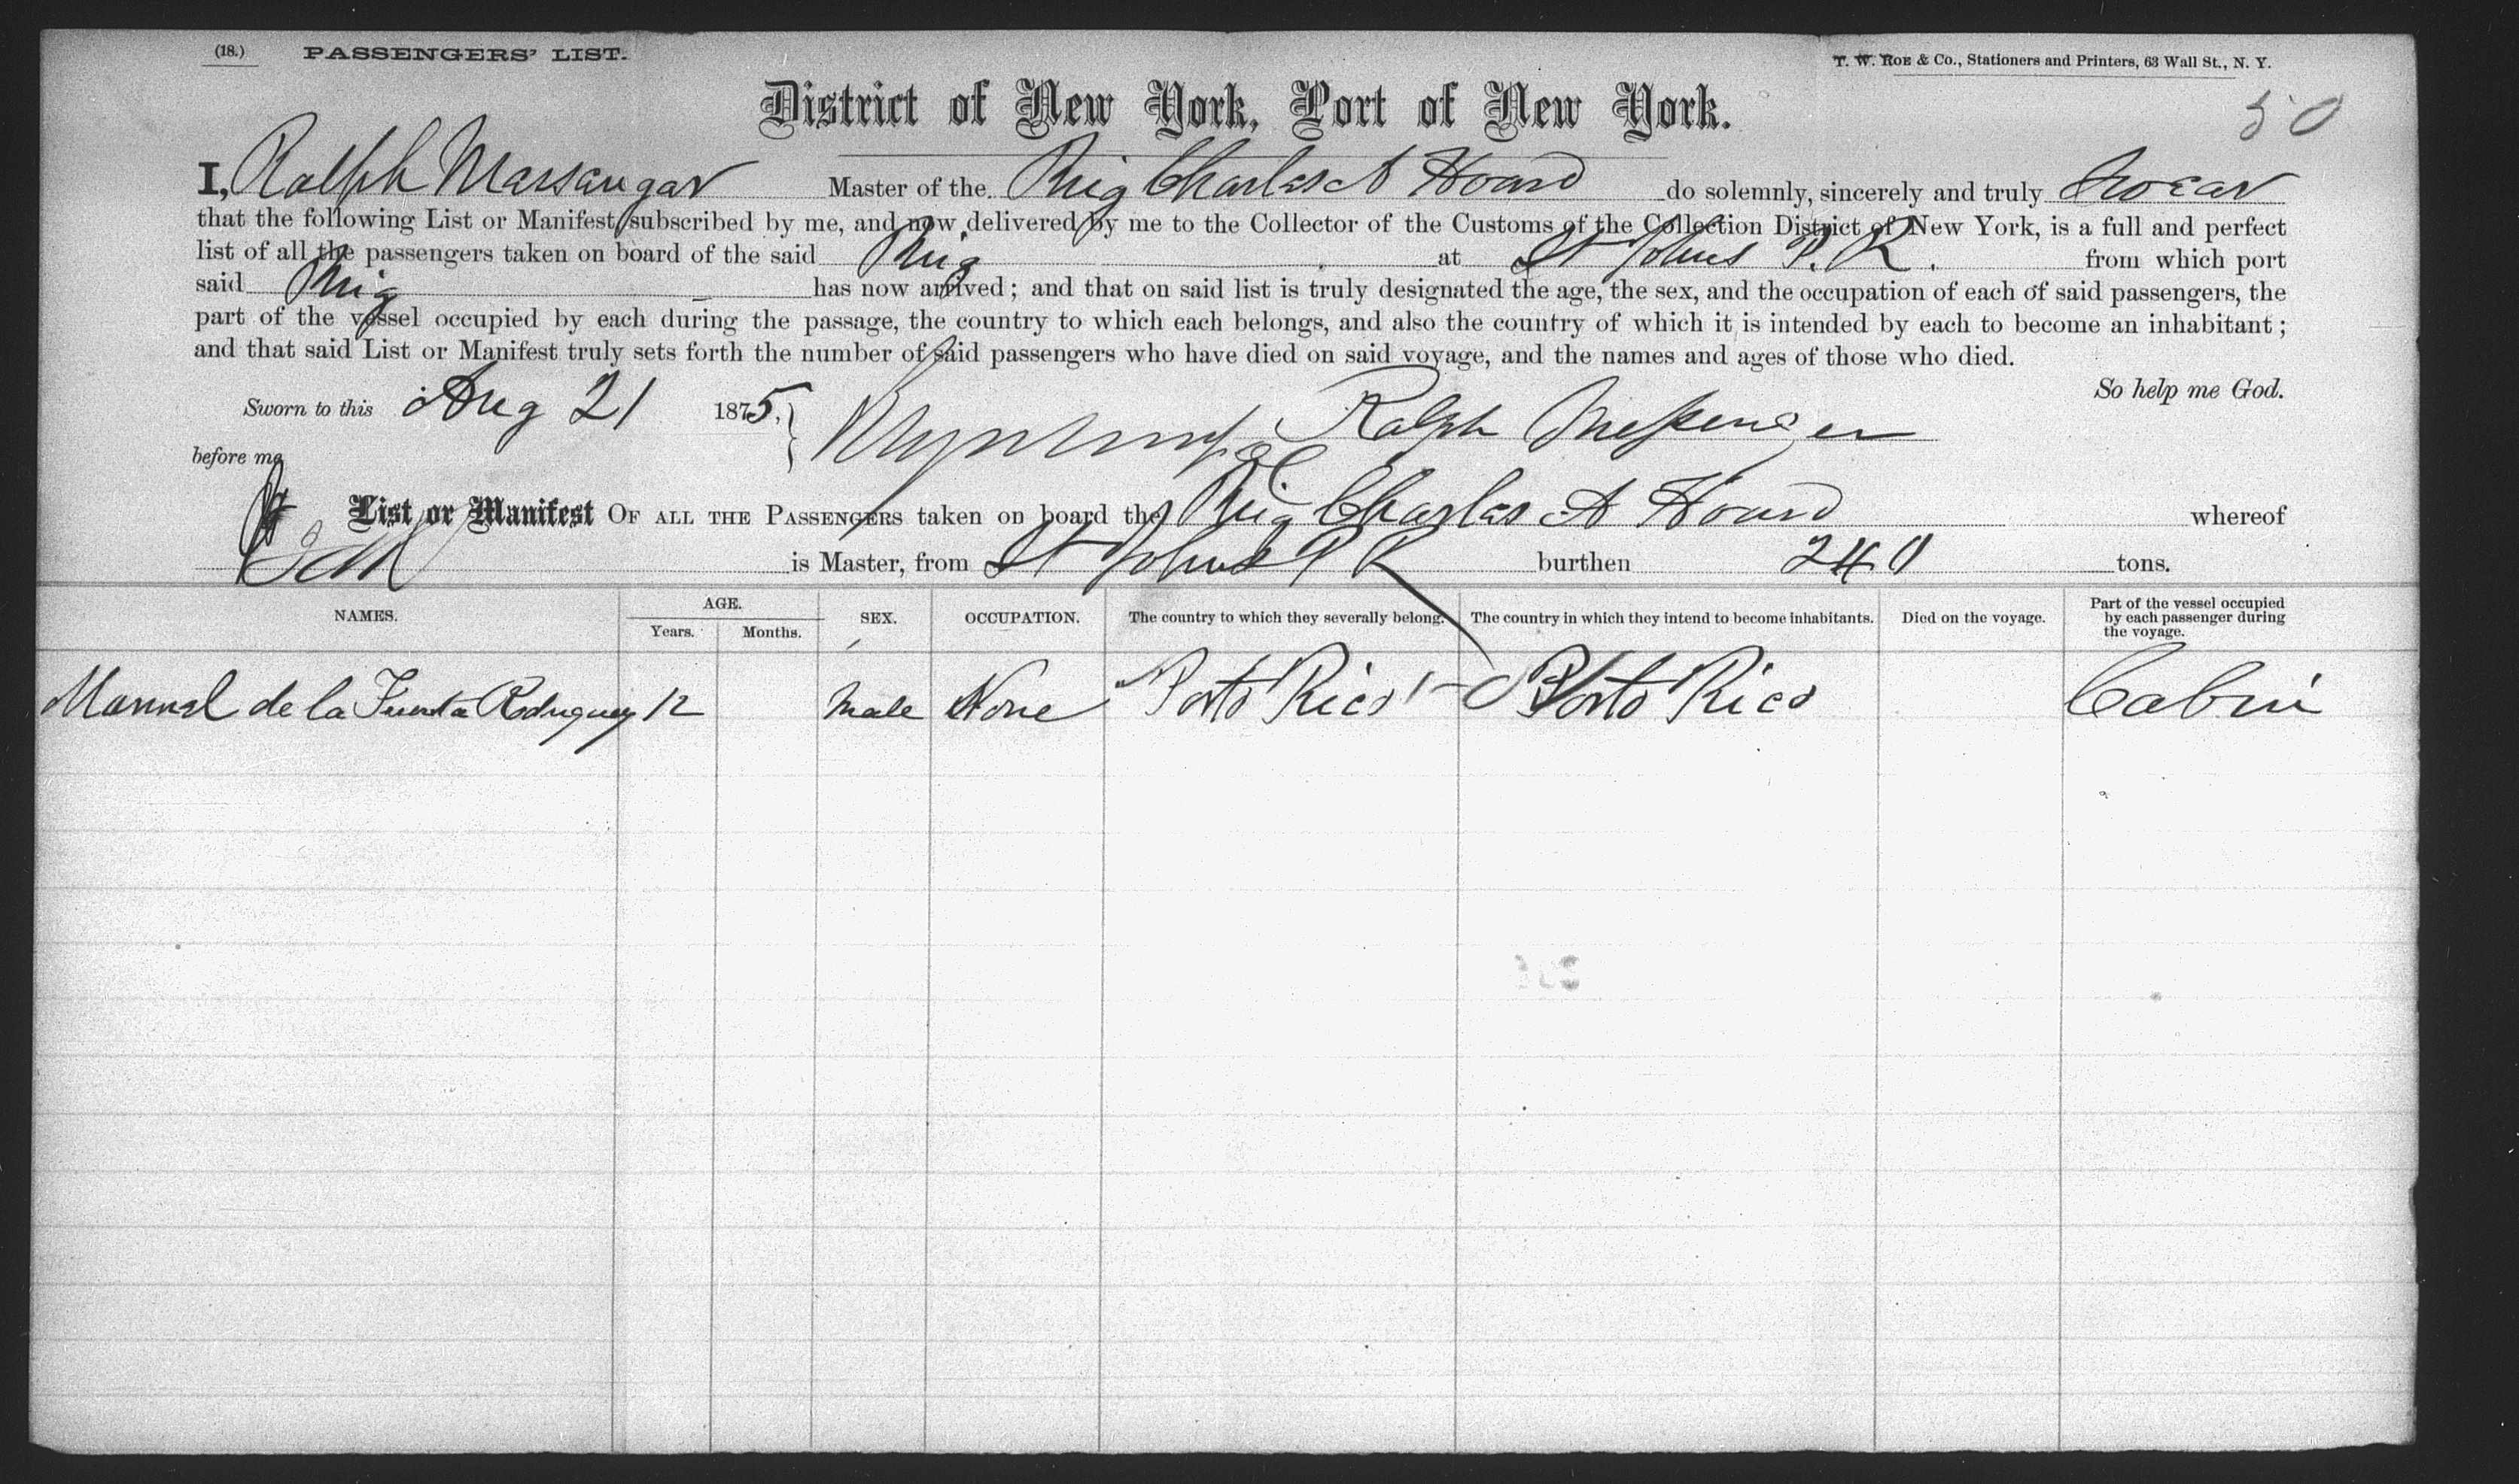 (18.) PASSENGERS' LIST.
T. W. ROE & Co., Stationers and Printers, 63 Wall St., N. Y.
50
District of New York, Port of New York.
I, Ralph Massangar Master of the Brig Charles A Hoard do solemnly, sincerely and truly swear
that the following List or Manifest, subscribed by me, and now delivered by me to the Collector of the Customs of the Collection District of New York, is a full and perfect
list of all the passengers taken on board of the said Brig at St Johns P. R. from which port
said Brig has now arrived; and that on said list is truly designated the age, the sex, and the occupation of each of said passengers, the
part of the vessel occupied by each during the passage, the country to which each belongs, and also the country of which it is intended by each to become an inhabitant;
and that said List or Manifest truly sets forth the number of said passengers who have died on said voyage, and the names and ages of those who died.
So help me God.
Sworn to this Aug 21 1875. Ralph Messenger
before me
List or Manifest OF ALL THE PASSENGERS taken on board the Brig Charles A Hoard whereof
is Master, from St Johns P R burthen 240 tons.
NAMES. AGE. Years. Months. SEX. OCCUPATION. The country to which they severally belong. The country in which they intend to become inhabitants. Died on the voyage. Part of the vessel occupied by each passenger during the voyage.
Manuel de la Fuenta Rodriguez 12 Male None Porto Rico Porto Rico Cabin